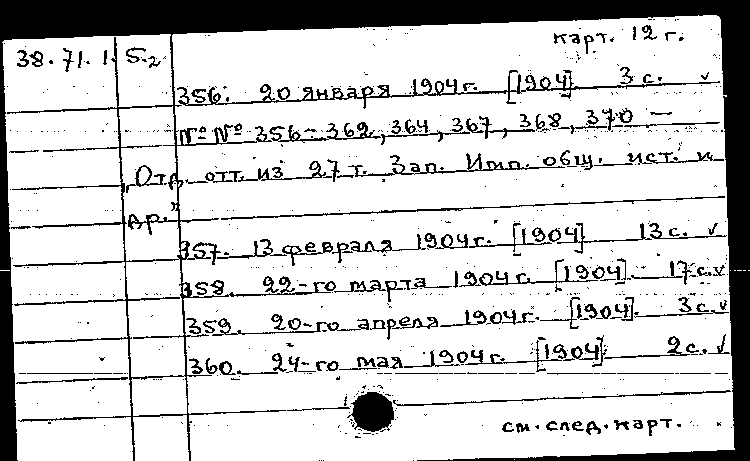 карт. 12 г.
38.71.1. 5.2
356. 20 января 1904 г. [1904] 3 с. ✓
№№ 356-362, 364, 367, 368, 370 —
„Отд. отт. из 27 т. Зап. Имп. общ. ист. и
др.”
357. 13 февраля 1904 г. [1904] 13 с. ✓
358. 22-го марта 1904 г. [1904]. 17 с. ✓
359. 20-го апреля 1904 г. [1904]. 3 с. ✓
360. 24-го мая 1904 г. [1904]. 2 с. ✓
см. след. карт.